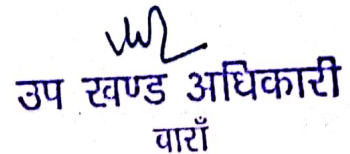 उप खण्ड अधिकारी
वाराँ